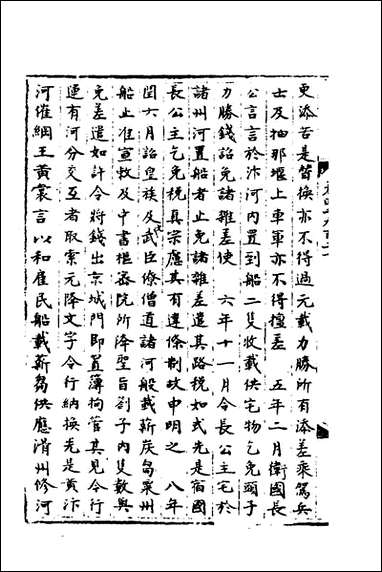 更添若是替換亦不得過元載力勝所有添差乘駕兵
士及抽那堰上車軍亦不得擅差　五年二月衛國長
公言言於汴河内置到船二隻收載供宅物乞免頭子
力勝錢詔免諸雜差使　六年十一月令長公主宅於
諸州河置船者止免諸雜差遣其路税如式先是宿國
長公主乞免税真宗應其有違條制故申明之　八年
閏六月詔皇族及武臣僚僧道諸河般載薪炭芻粟州
船止准宣敕及中書樞密院所降聖旨劄子内隻數與
免差遣如計令將錢出京城門即置簿拘管其見今行
運有河分交互者取索元降文字令行納換先是黄汴
河催綱王黄裳言以和雇民船載薪芻供應滑州修河